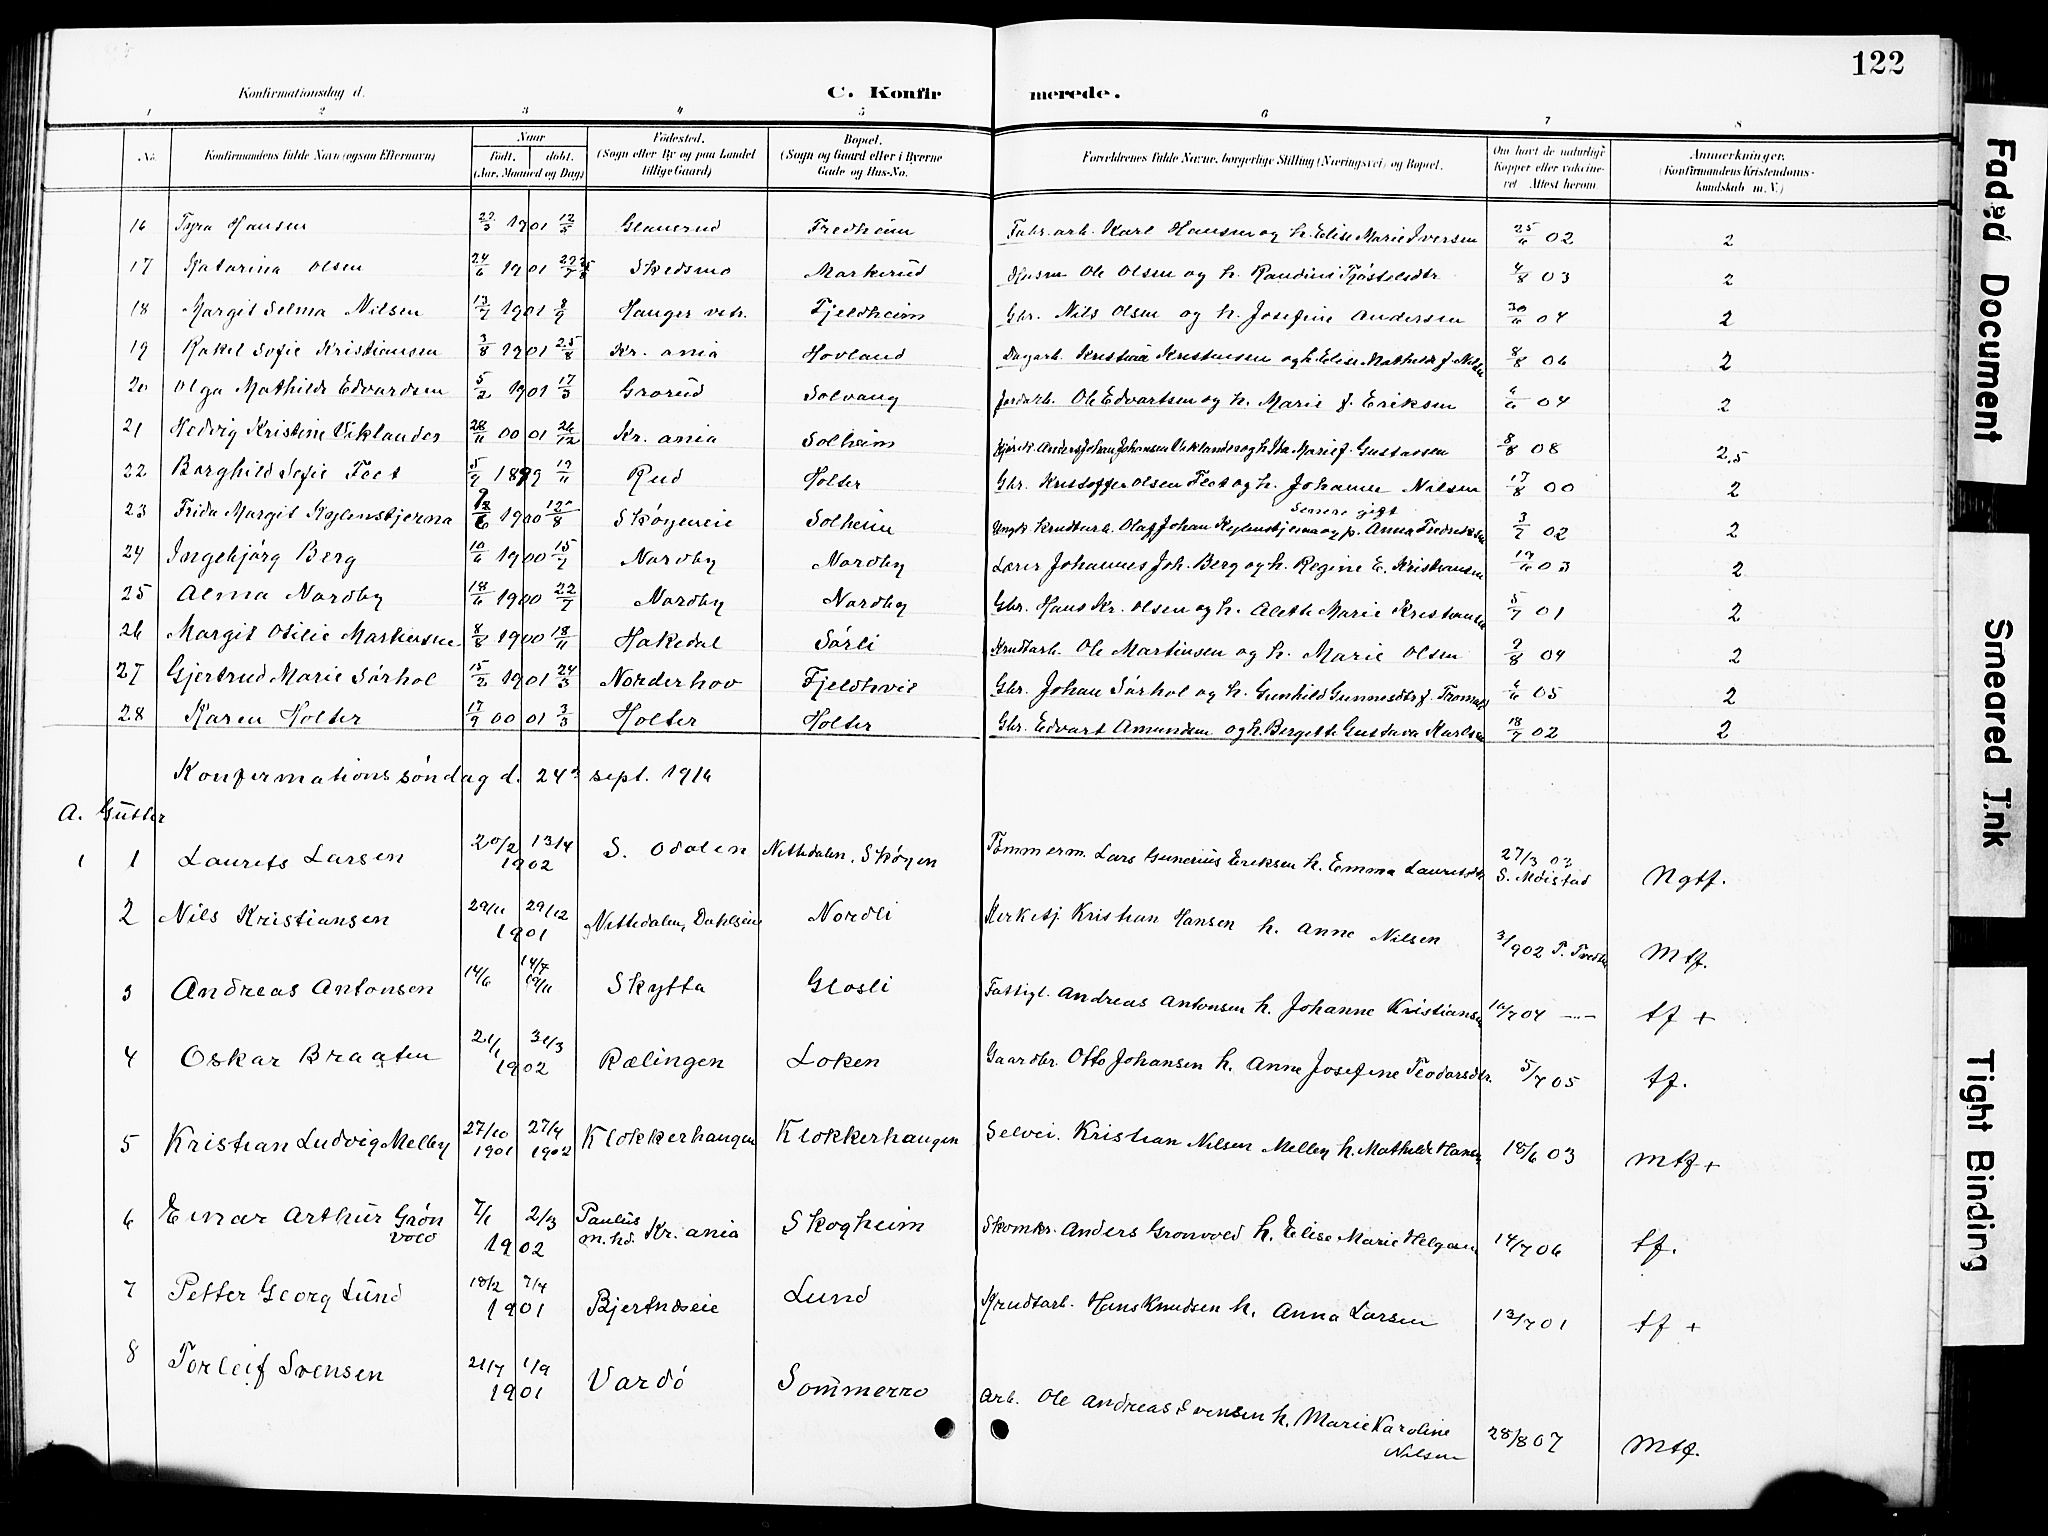 122
Konfirmationsdag d.
C. Konfirmerede.
1 2 3 4 5 6 7 8
No. Konfirmandens fulde Navn (ogsaa Efternavn) Naar født. døbt. (Aar, Maaned og Dag) Fødested. (Sogn eller By og paa Landet tillige Gaard) Bopæl. (Sogn og Gaard eller i Byerne Gade og Hus-No. Forældrenes fulde Navne, borgerlige Stilling (Næringsvei) og Bopæl. Om havt de naturlige Kopper eller vaccineret Attest herom. Anmærkninger. (Konfirmandens Kristendomskundskab m. V.)
16 Tyra Hansen 1901 Glanerud Fredheim Fabr. arb. Karl Hansen og h. Elise Marie Iversen 25/6 02 2
17 Katarina Olsen 24/6 1901 Skedsmo Markerud Ole Olsen og h. 4/8 03 2
18 Margit Selma Nilsen 13/7 1901 8/9 Hauger vestr. Fjeldheim Gbr. Nils Olsen og h. Josefine Andersen 30/6 04 2
19 Rakel Sofie Kristiansen 3/8 1901 25/8 Kr. ania Hovland Dagarb. Kristian Kristiansen og h. Elise Mathilde f. Nilsen 8/8 06 2
20 Olga Mathilde Edvardsen 5/2 1901 17/3 Grorud Solvang Jordarb. Ole Edvartsen og h. Marie f. Eriksen 04 2
21 Hedvig Kristine Viklander 28/11 00 01 26/12 Kr. ania Solheim Anders Johan Johansen Viklander og h. Ida Marie f. Gustavsen 8/8 08 2,5
22 Borghild Sofie Foet 5/9 1899 19/11 Rud Holter Gbr. Kristoffer Olsen og h. Johanne Nilsen 17/8 00 2
23 Frida Margit Kylenstjerna 1900 12/8 Skøyeneie Solheim Ungk. Krudtarb. Olaf Johan Kylenstjerna og p. Anna Fredriksen senere gift 3/7 02 2
24 Ingebjørg Berg 10/6 1900 15/7 Nordby Nordby Lærer Johannes Joh. Berg og h. Regine E. Kristiansen 03 2
25 Alma Nordby 18/6 1900 22/7 Nordby Nordby Gbr. Hans Kr. Olsen og h. Alette Marie Kristiansen 5/7 01 2
26 Margit Otilie Martinsen 8/8 1900 18/11 Hakedal Sørli Krudtarb. Ole Martinsen og h. Marie Olsen 9/8 04 2
27 Gjertrud Marie Sørhol 15/2 1901 24/3 Norderhov Fjeldhvil Gbr. Johan Sørhol og h. Gunhild f. 05 2
28 Karen Holter 17/9 00 01 3/3 Holter Holter Gbr. Edvart Amundsen og h. Bergitte Gustava Karlsen 18/7 02 2
Konfirmationssøndag d. 24de sept. 1916
A. Gutter
1 1 Laurits Larsen 20/2 13/4 1902 S. Odalen Nittedalen, Skøyen Tømmerm. Lars Gunerius Eriksen h. Emma Lauritsdtr. 27/3 03 S. Moistad Ngtf.
2 Nils Kristiansen 29/11 29/12 1901 Nittedalen, Dahlseie Nordli Kirketj. Kristian Hansen h. Anne Nilsen 3/9 02 Mtf.
3 Andreas Antonsen 14/6 14/7 Skytta Glosli Fattigl. Andreas Antonsen h. Johanne Kristiansen 10/7 04 —"— tf +
4 Oskar Braaten 21/1 31/3 1902 Rælingen Løken Gaardbr. Otto Johansen h. Anne Josefine Teodorsdtr. 5/7 05 tf.
5 Kristian Ludvig Melby 27/10 1901 27/4 1902 Klokkerhaugen Klokkerhaugen Selvei. Kristian Nilsen Melby h. Mathilde Hansen 18/6 03 Mtf +
6 Einar Arthur Grønvold 7/1 2/3 1902 Paulus m.hd. Kr. ania Skogheim Skomkr. Anders Grønvold h. Elise Marie Helgesen 14/7 06 tf.
7 Petter Georg Lund 18/2 7/4 1901 Bjertnæseie Lund Krudtarb. Hans Knudsen h. Anna Larsen 13/7 01 tf +
8 Torleif Svensen 21/7 1/9 1901 Vardö Sommerro Arb. Ole Andreas Svensen h. Marie Karoline Nilsen 28/8 07 Mtf.
Faded Document
Smeared Ink
Tight Binding